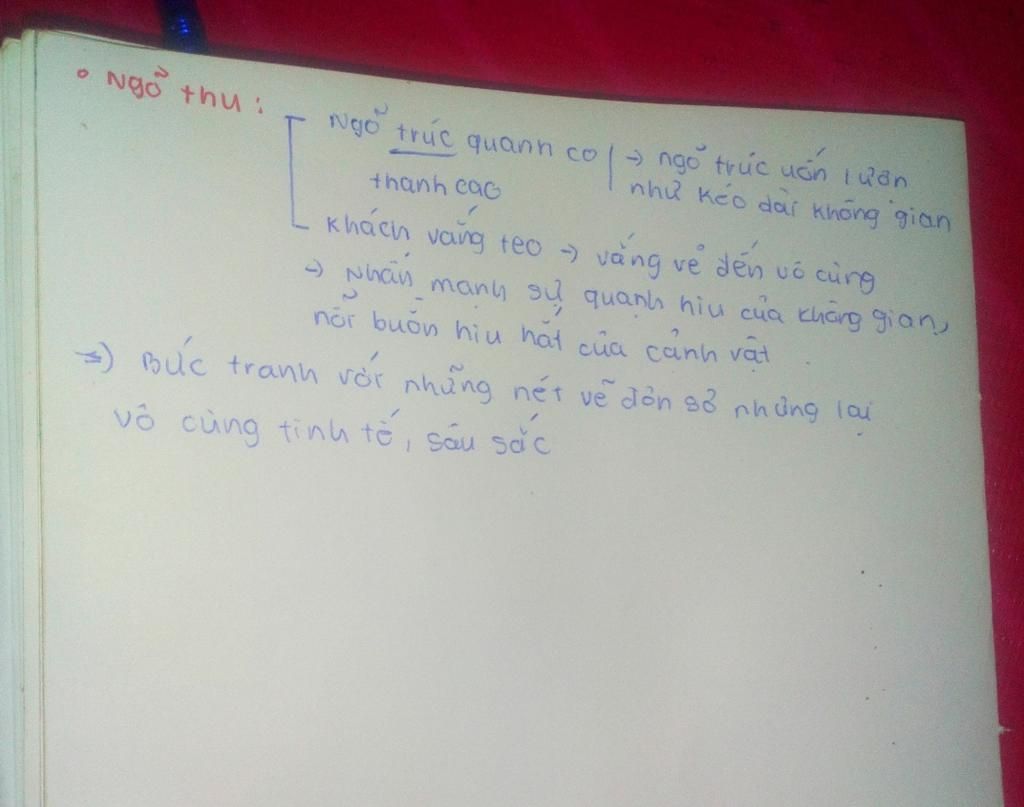 • Ngõ thu:
Ngõ trúc quanh co | → ngõ trúc uốn lượn
thanh cao
như kéo dài không gian
Khách vắng teo → vắng vẻ đến vô cùng
→ Nhấn mạnh sự quạnh hiu của không gian,
nỗi buồn hiu hắt của cảnh vật.
=> Bức tranh với những nét vẽ đơn sơ nhưng lại
vô cùng tinh tế, sâu sắc